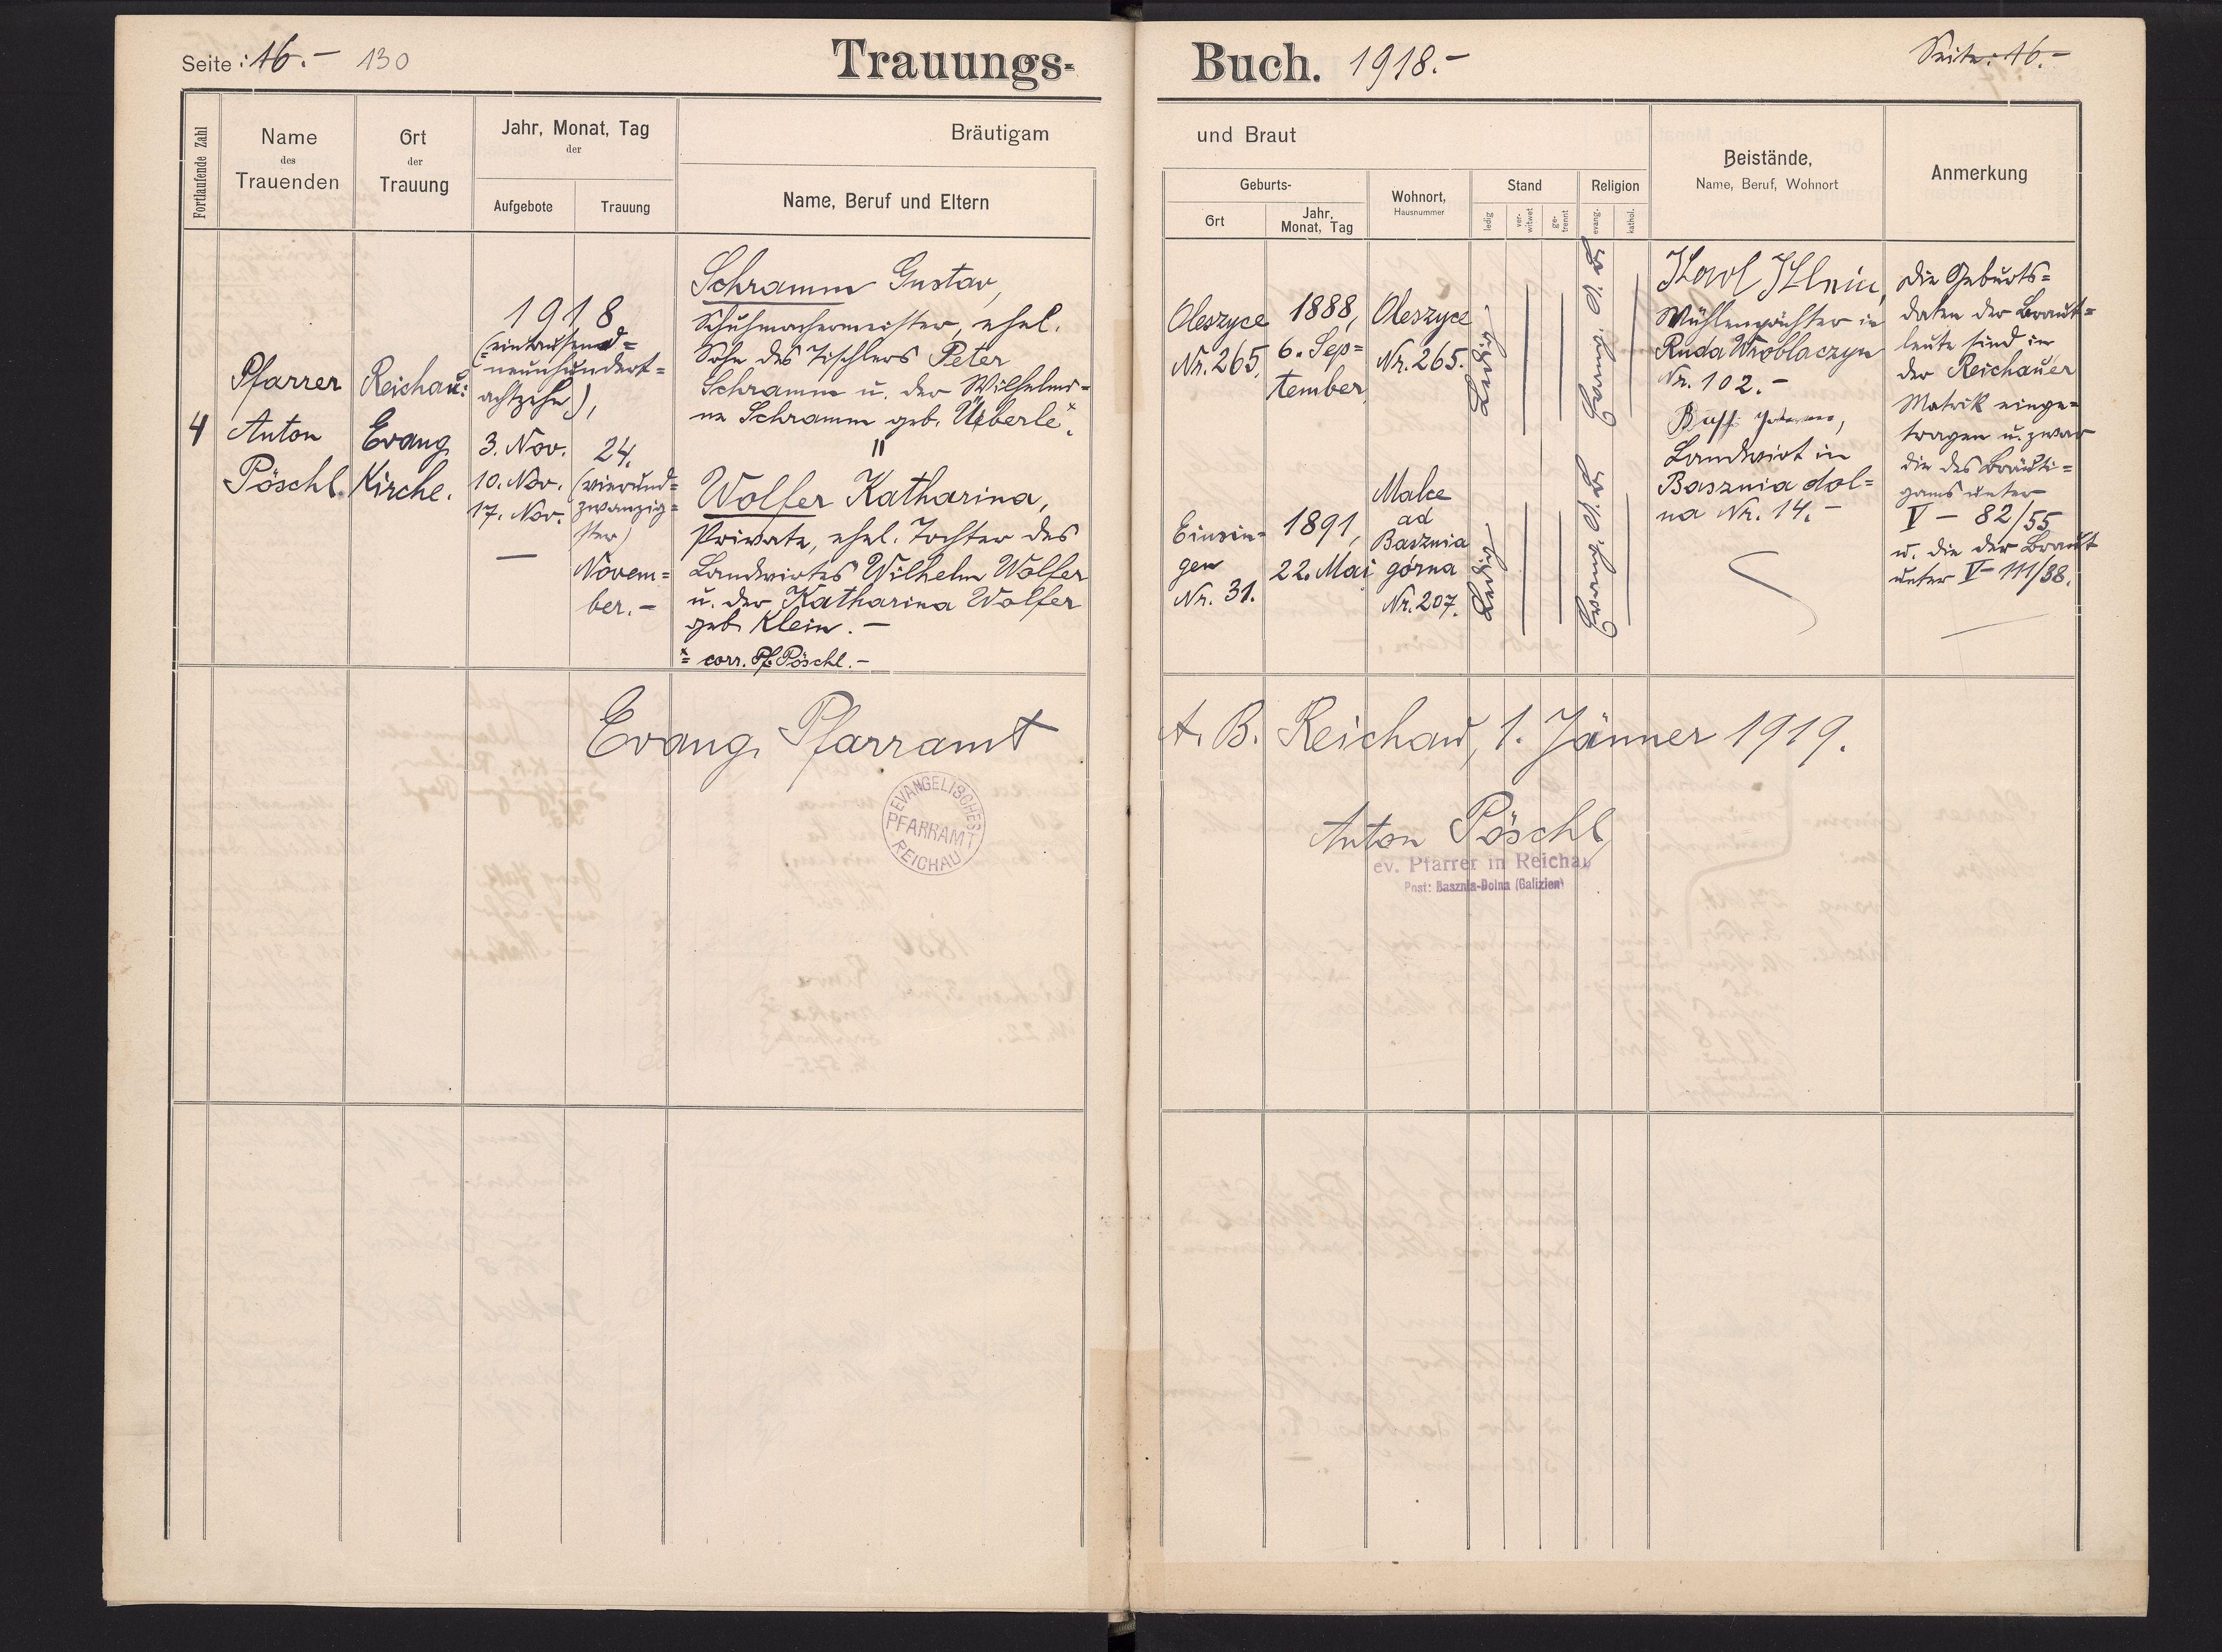 Seite: 16.- 130
Trauungs-
Buch. 1918.-
Seite: 16.-
Fortlaufende Zahl
Name
des
Trauenden
Ort
der
Trauung
Jahr, Monat, Tag
der
Aufgebote
Trauung
Bräutigam
Name, Beruf und Eltern
und Braut
Geburts-
Ort
Jahr,
Monat, Tag
Wohnort,
Hausnummer
Stand
ledig
ver-
witwet
ge-
trennt
Religion
evang.
kathol.
Beistände,
Name, Beruf, Wohnort
Anmerkung
4
Pfarrer
Anton
Pöschl.
Reichau:
Evang.
Kirche.
1918
(eintausend=
neunhundert=
achtzehn),
3. Nov.
10. Nov.
17. Nov.
—
24.
(vierund=
zwanzig=
ster)
Novem=
ber.-
Schramm Gustav,
Schuhmachermeister, ehel.
Sohn des Tischlers Peter
Schramm u. der Wilhelmi-
ne Schramm geb. Ueberle.
Wolfer Katharina,
Private, ehel. Tochter des
Landwirtes Wilhelm Wolfer
u. der Katharina Wolfer
geb. Klein.-
x= corr. Pf. Pöschl.-
Oleszyce
Nr. 265.
1888,
6. Sep=
tember
Oleszyce
Nr. 265.
Ledig
Evang. A. B.
Einsin-
gen
Nr. 31.
1891,
22. Mai
Malce
ad
Basznia
górna
Nr. 207.
Ledig
Evang. A. B.
Karl Klein,
Mühlenpächter in
Ruda Wroblaczyn
Nr. 102.-
Landwirt in
Basznia dol=
na Nr. 14.-
Die Geburts=
daten der Braut=
leute sind in
der Reichauer
Matrik einge=
tragen u. zwar
die des Bräuti=
gams unter
V - 82/55
u. die der Braut
unter V - 111/38.
Evang. Pfarramt A. B. Reichau, 1. Jänner 1919.
EVANGELISCHES
PFARRAMT
REICHAU
Anton Pöschl
ev. Pfarrer in Reichau
Post: Basznia-Dolna (Galizien)